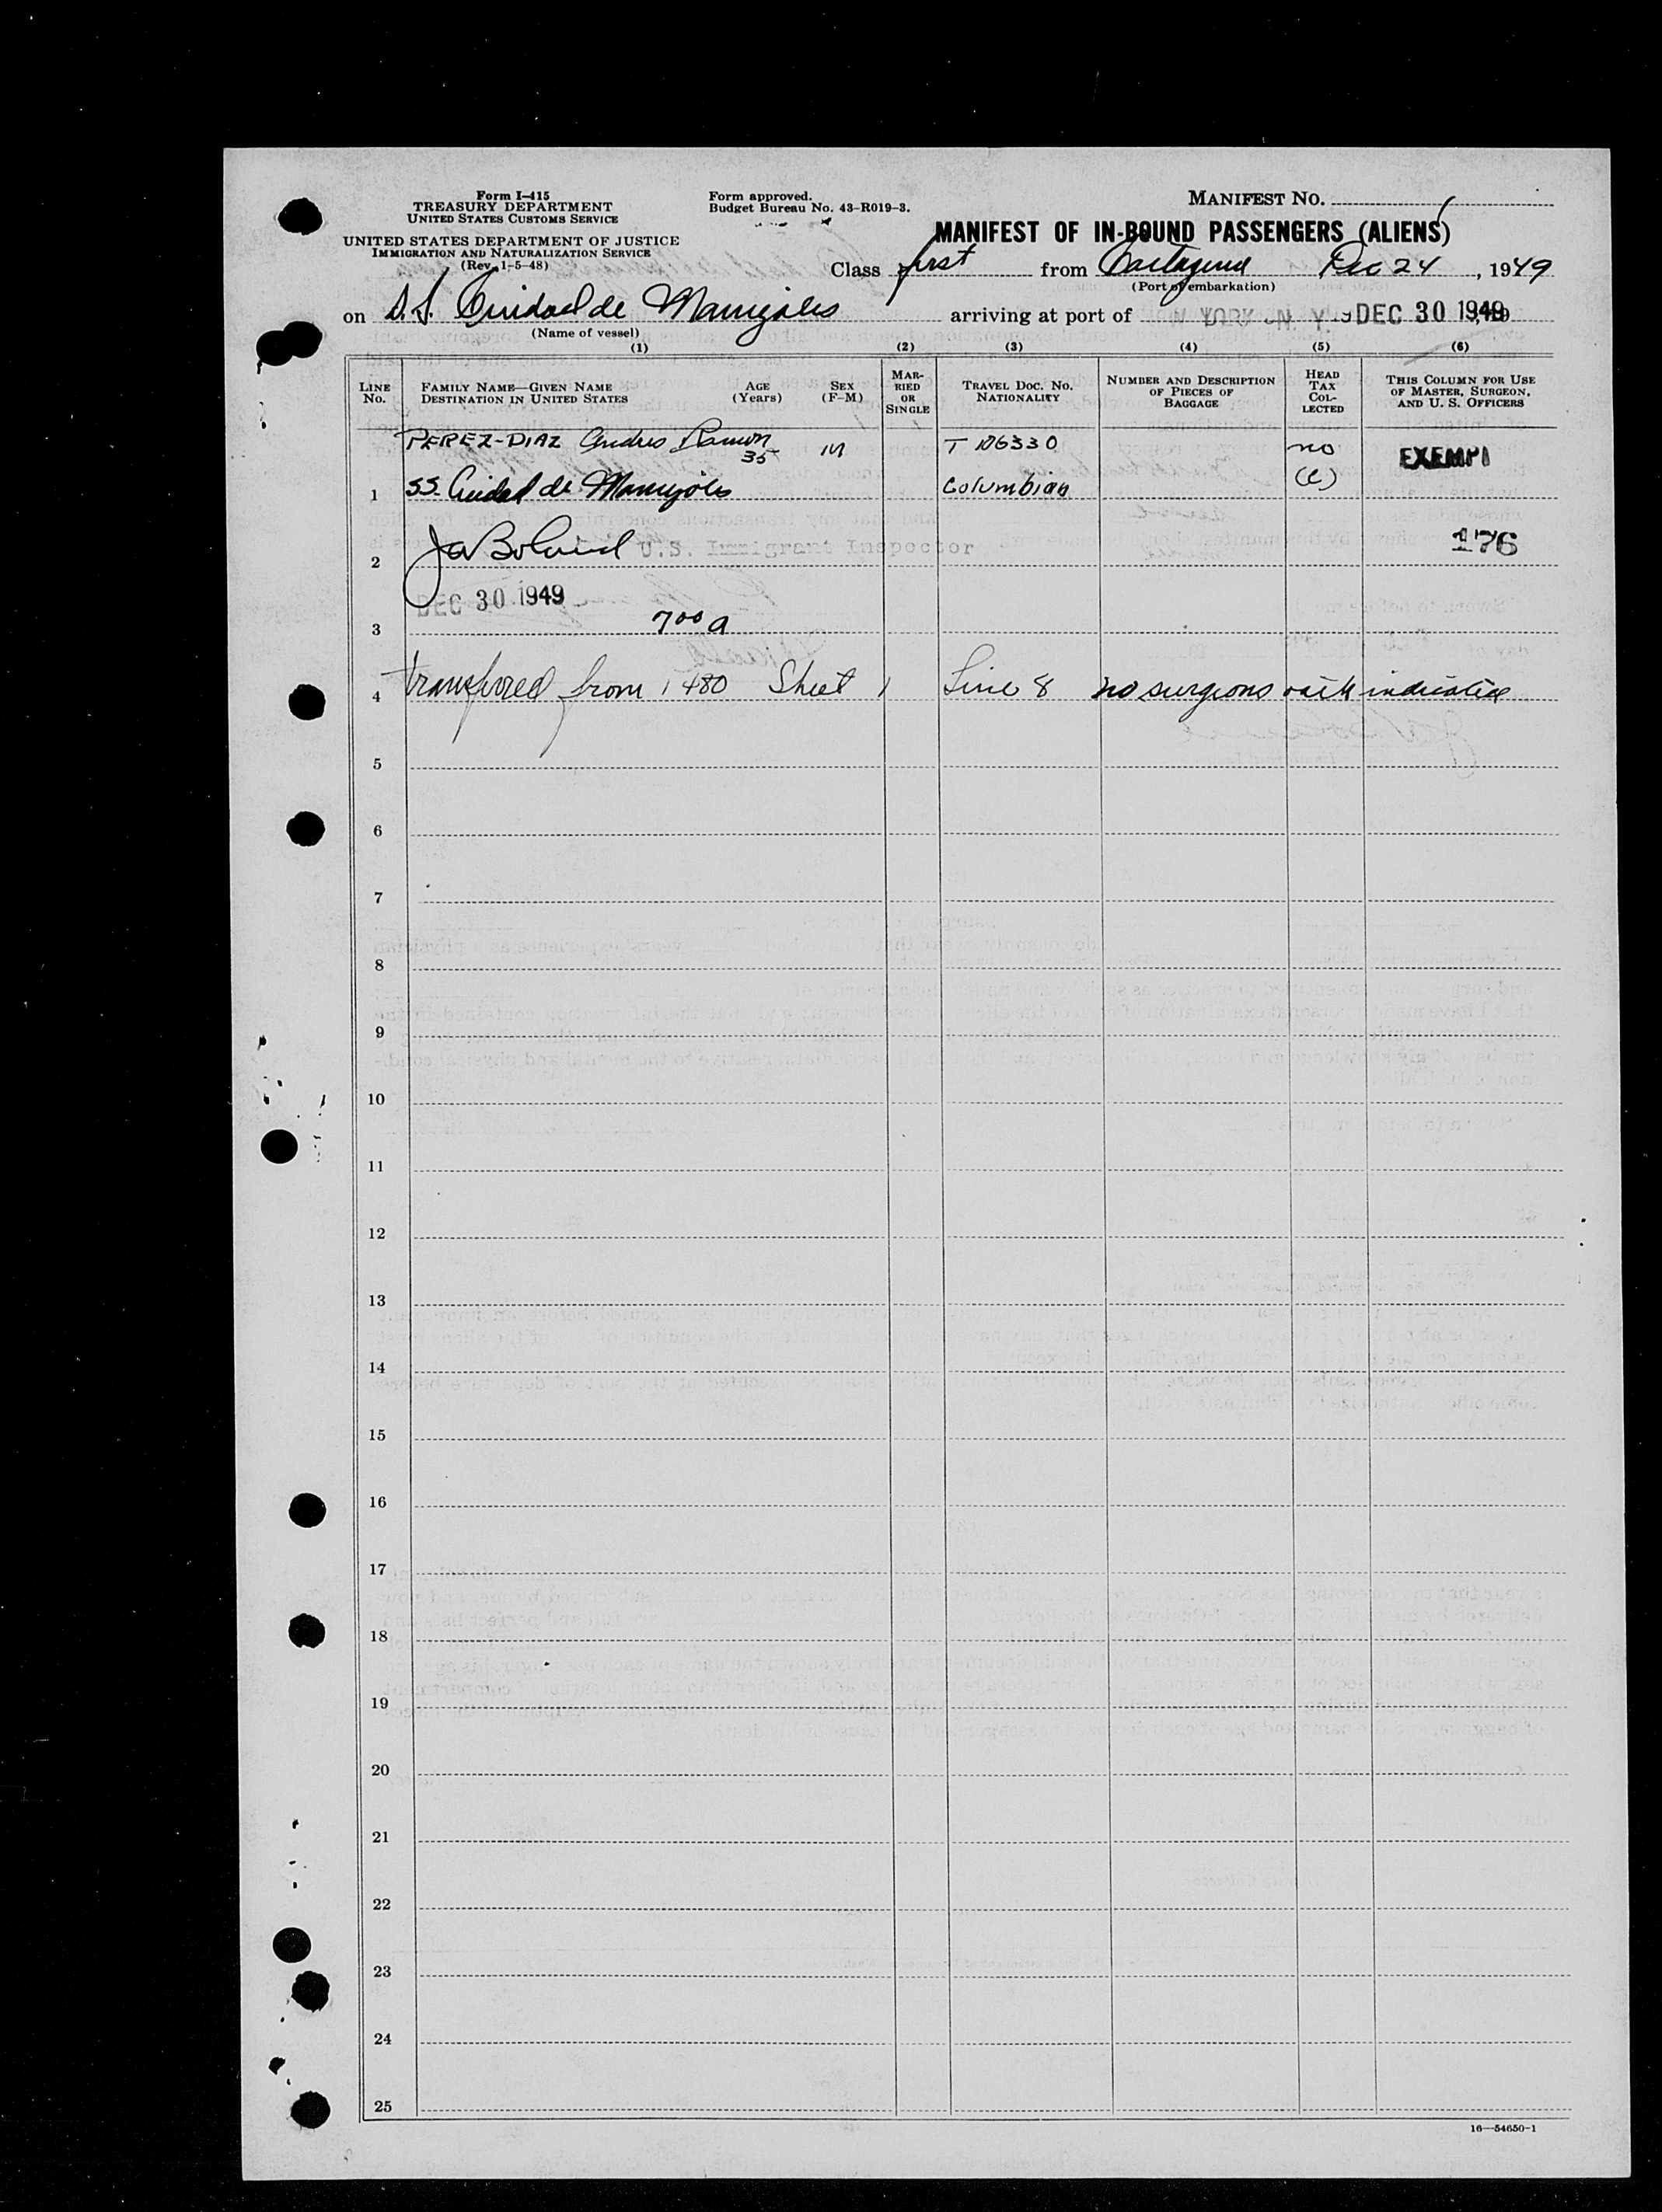 Form I-415
TREASURY DEPARTMENT
UNITED STATES CUSTOMS SERVICE
UNITED STATES DEPARTMENT OF JUSTICE
IMMIGRATION AND NATURALIZATION SERVICE
(Rev. 1-5-48)
Form approved.
Budget Bureau No. 43-R019-3.
MANIFEST NO.
MANIFEST OF IN-BOUND PASSENGERS (ALIENS)
Class first from Cartagena Dec 24, 1949
(Port of embarkation)
on S.S. Ciudad de Manizales arriving at port of NEW YORK N. Y. DEC 30 1949
(Name of vessel)
(1) (2) (3) (4) (5) (6)
LINE No. FAMILY NAME—GIVEN NAME DESTINATION IN UNITED STATES AGE (Years) SEX (F-M) MARRIED OR SINGLE TRAVEL DOC. NO. NATIONALITY NUMBER AND DESCRIPTION OF PIECES OF BAGGAGE HEAD TAX COLLECTED THIS COLUMN FOR USE OF MASTER, SURGEON, AND U. S. OFFICERS
PEREZ-DIAZ Andres Ramon 35 M T 186330 no EXEMPT
1 SS. Ciudad de Manizales Columbian (e)
2 U.S. Immigrant Inspector 176
DEC 30 1949
3 7 00 a
4 transfered from I 480 Sheet 1 Line 8 no surgeons oath indicated
5
6
7
8
9
10
11
12
13
14
15
16
17
18
19
20
21
22
23
24
25
16—54650-1